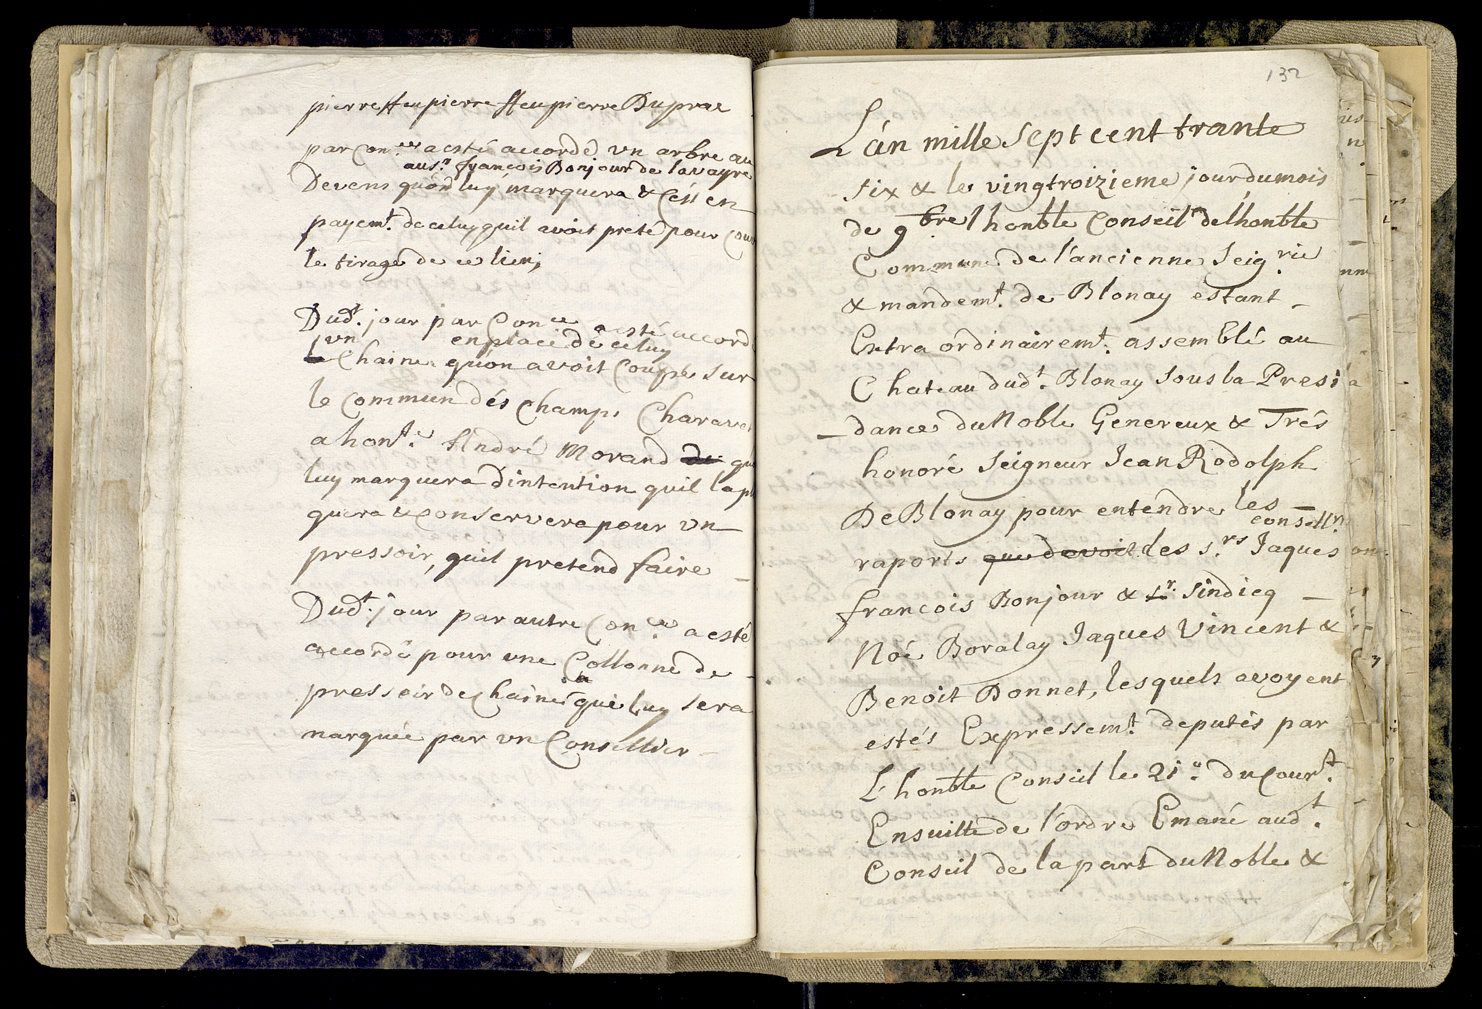 pierre ffeu pierre ffeu pierre Dupraz
par Con.ce a esté accordé un arbre au
au s.r françois Bonjour de lavayre
Devens quon luy marquera & C'est en
payem.t de celuy quil avoit preté pour
le tirage de ce lieu;
Dud.t jour par Con.ce a esté accord
un en place de celuy
Chaine quon avoit Coupé sur
le Commun dés Champs Charave
a hon.te André Morand qu
luy marquera d'intention quil lap
quera & conservera pour un
pressoir, quil pretend faire
Dud.t jour par autre Con.ce a esté
accordé pour une Collonne de
pressoir de Chaine qui luy sera
marquée par un Conseillier
132
L'an mille Sept cent trante
six & le vingtroizieme jour du mois
de 9bre l'honble Conseil de lhonble
Commune de l'ancienne Seig.rie
& mandem.t de Blonay estant
Extraordinairem.t assemblé au
Chateau dud.t Blonay sous la Presi
dance du Noble Genereux & Trés
honoré Seigneur Jean Rodolph
De Blonay pour entendre les
conseill.rs
raports que devoit les s.rs Jaques
françois Bonjour & s.r Sindicq
Noé Boralay Jaques Vincent &
Benoit Bonnet, lesquels avoyent
estés Expressem.t deputés par
L'honble Conseil le 21.e du Cour.t
Ensuitte de l'ordre Emané aud.t
Conseil de la part du Noble &